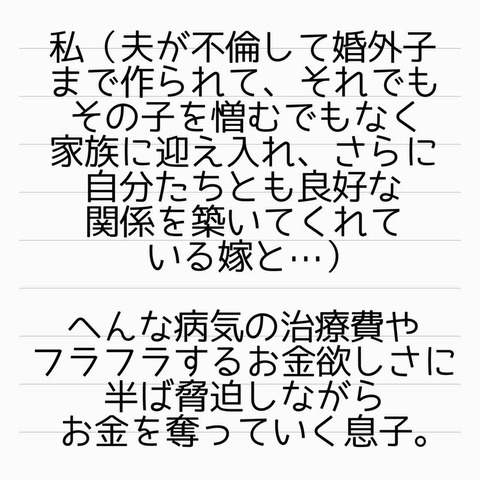 私（夫が不倫して婚外子
まで作られて、それでも
その子を憎むでもなく
家族に迎え入れ、さらに
自分たちとも良好な
関係を築いてくれて
いる嫁と…）
へんな病気の治療費や
フラフラするお金欲しさに
半ば脅迫しながら
お金を奪っていく息子。